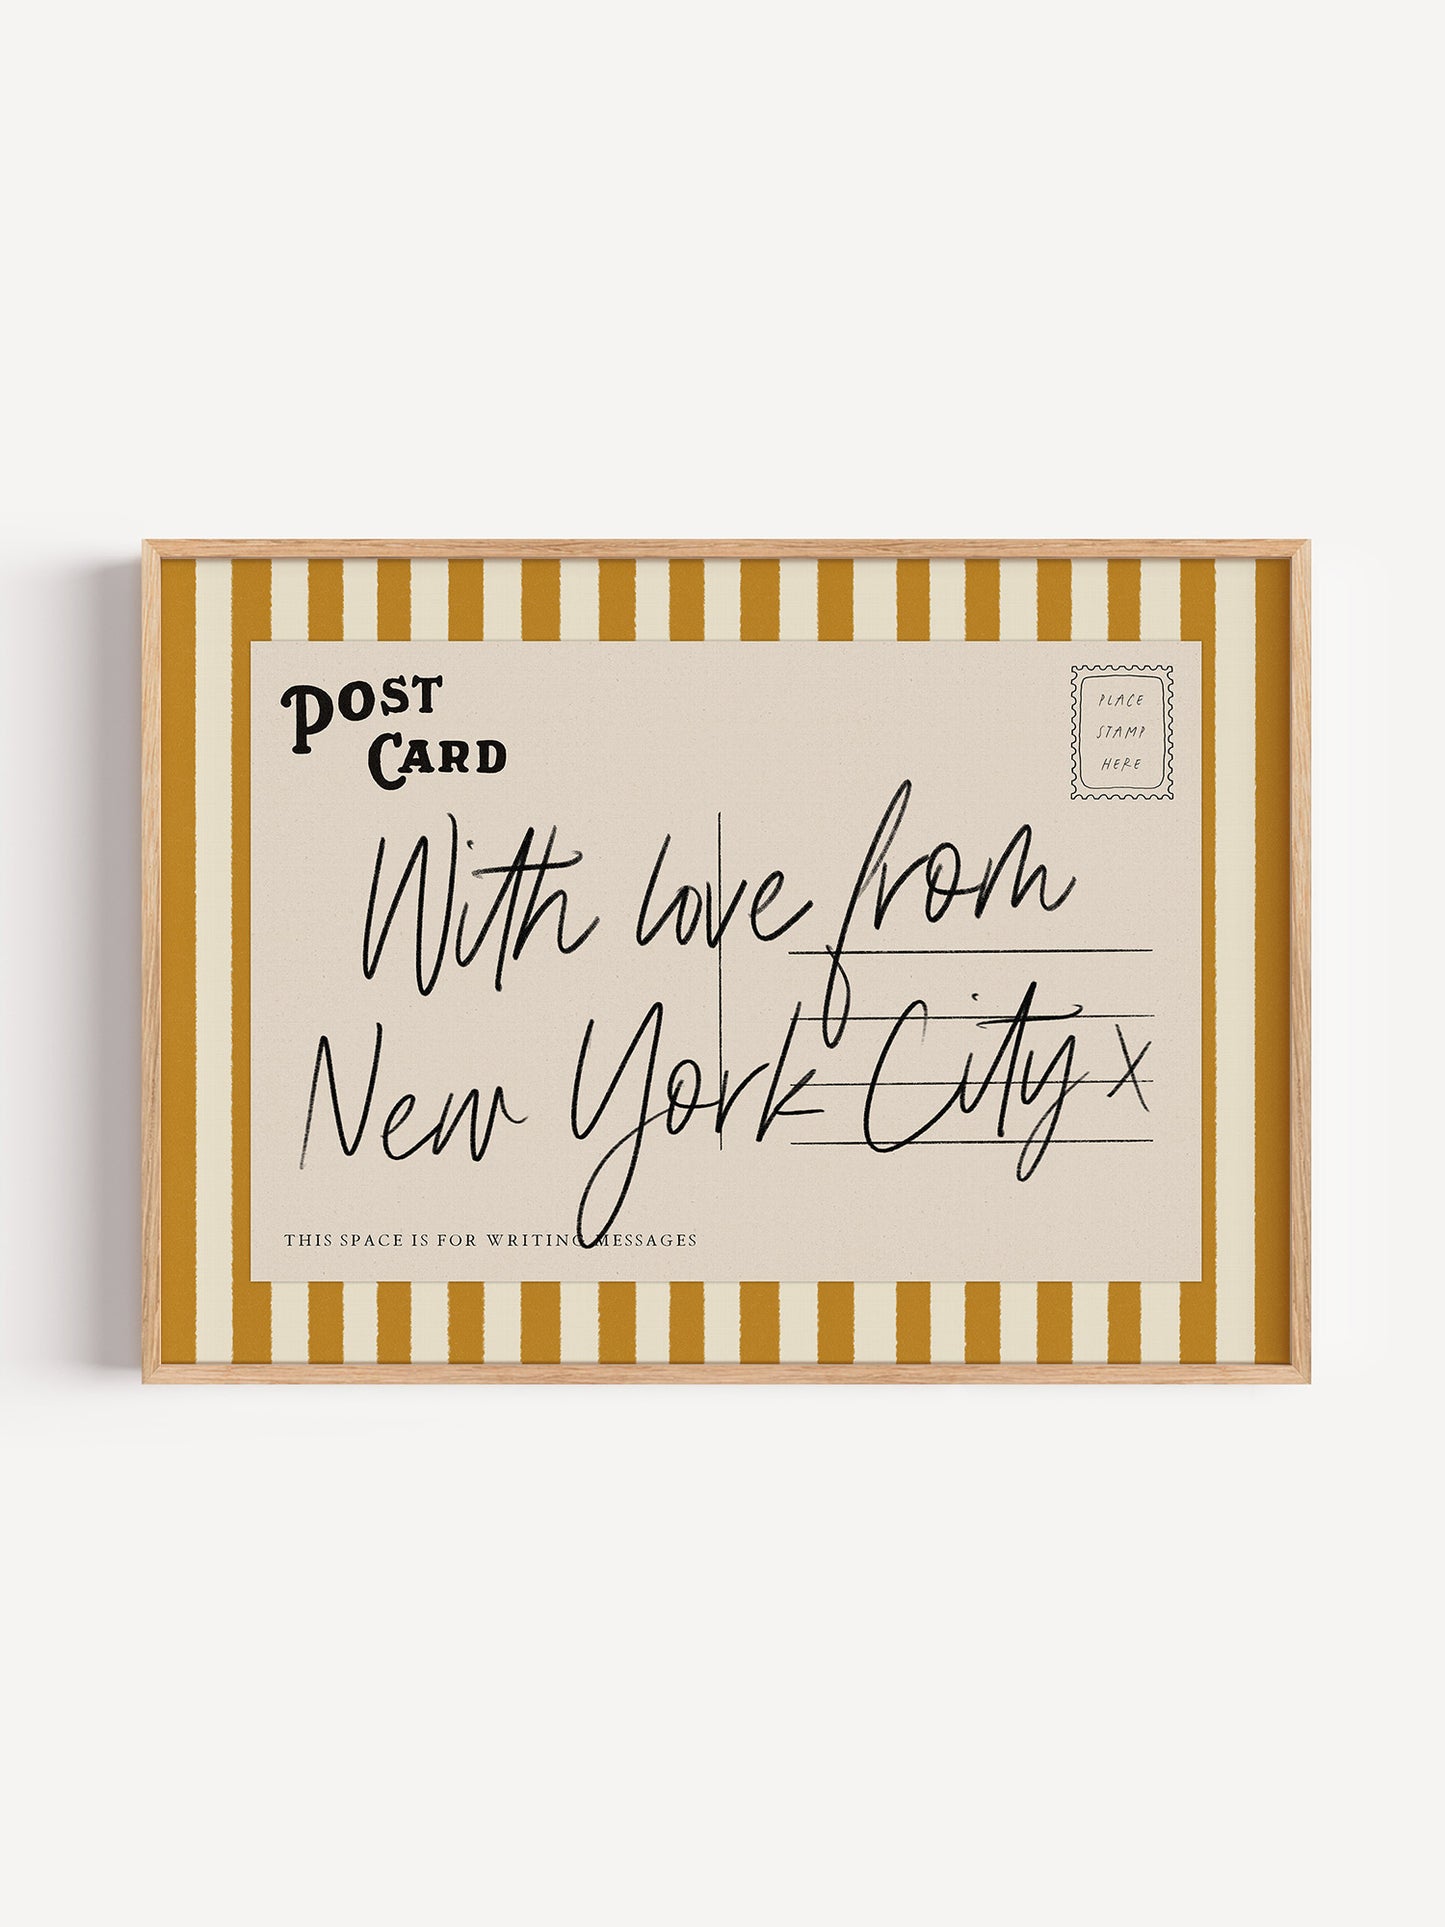 POST
CARD
PLACE
STAMP
HERE
With love from
New York City x
THIS SPACE IS FOR WRITING MESSAGES